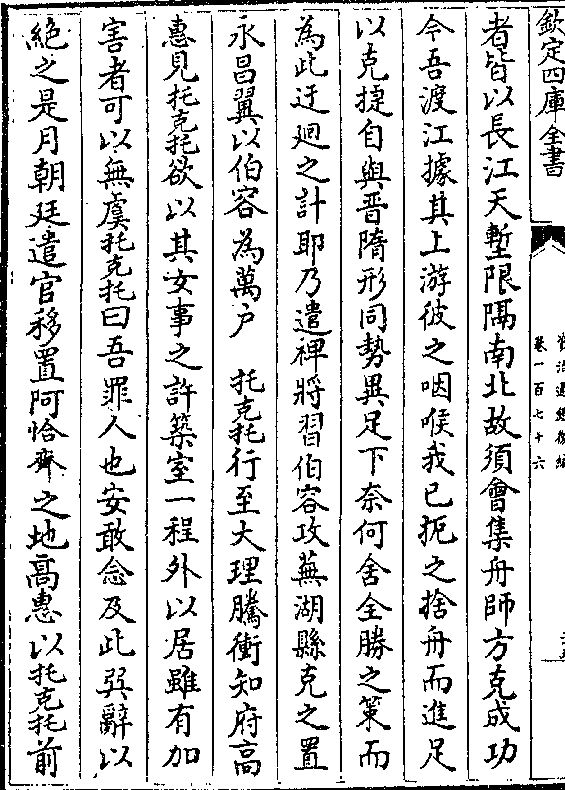 欽定四庫全書
資治通鑑後編
卷一百七十六
者皆以長江天塹限隔南北故須會集舟師方克成功
今吾渡江據其上游彼之咽喉我已扼之捨舟而進足
以克捷自與晉隋形同勢異足下奈何舍全勝之策而
為此迂廻之計耶乃遣裨將習伯容攻蕪湖縣克之置
永昌翼以伯容為萬户　托克托行至大理騰衝知府高
惠見托克托欲以其女事之許築室一程外以居雖有加
害者可以無虞托克托曰吾罪人也安敢念及此巽辭以
絶之是月朝廷遣官移置阿恰齊之地高惠以托克托前